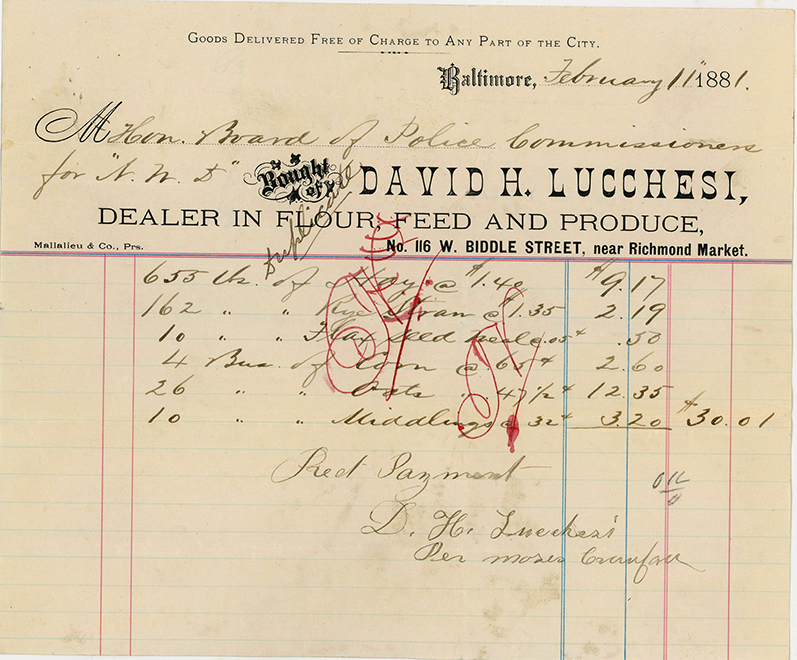 GOODS DELIVERED FREE OF CHARGE TO ANY PART OF THE CITY.
Baltimore, February 11" 1881.
M Hon. Board of Police Commissioners
for "N. W. D"
Bought of DAVID H. LUCCHESI,
DEALER IN FLOUR, FEED AND PRODUCE,
Duplicate
Mallalieu & Co., Prs. No. 116 W. BIDDLE STREET, near Richmond Market.
655 lbs. of Hay @ $1.40 $9.17
162 " " Rye Straw @ $1.35 2.19
10 " " Flax seed meal @ .05¢ .50
4 Bus. of Corn @ .65¢ 2.60
26 " " Oats " .47 1/2¢ 12.35
10 " " Middlings @ 32¢ 3.20 $30.01
Rect Payment
D. H. Lucchesi
Per Moses